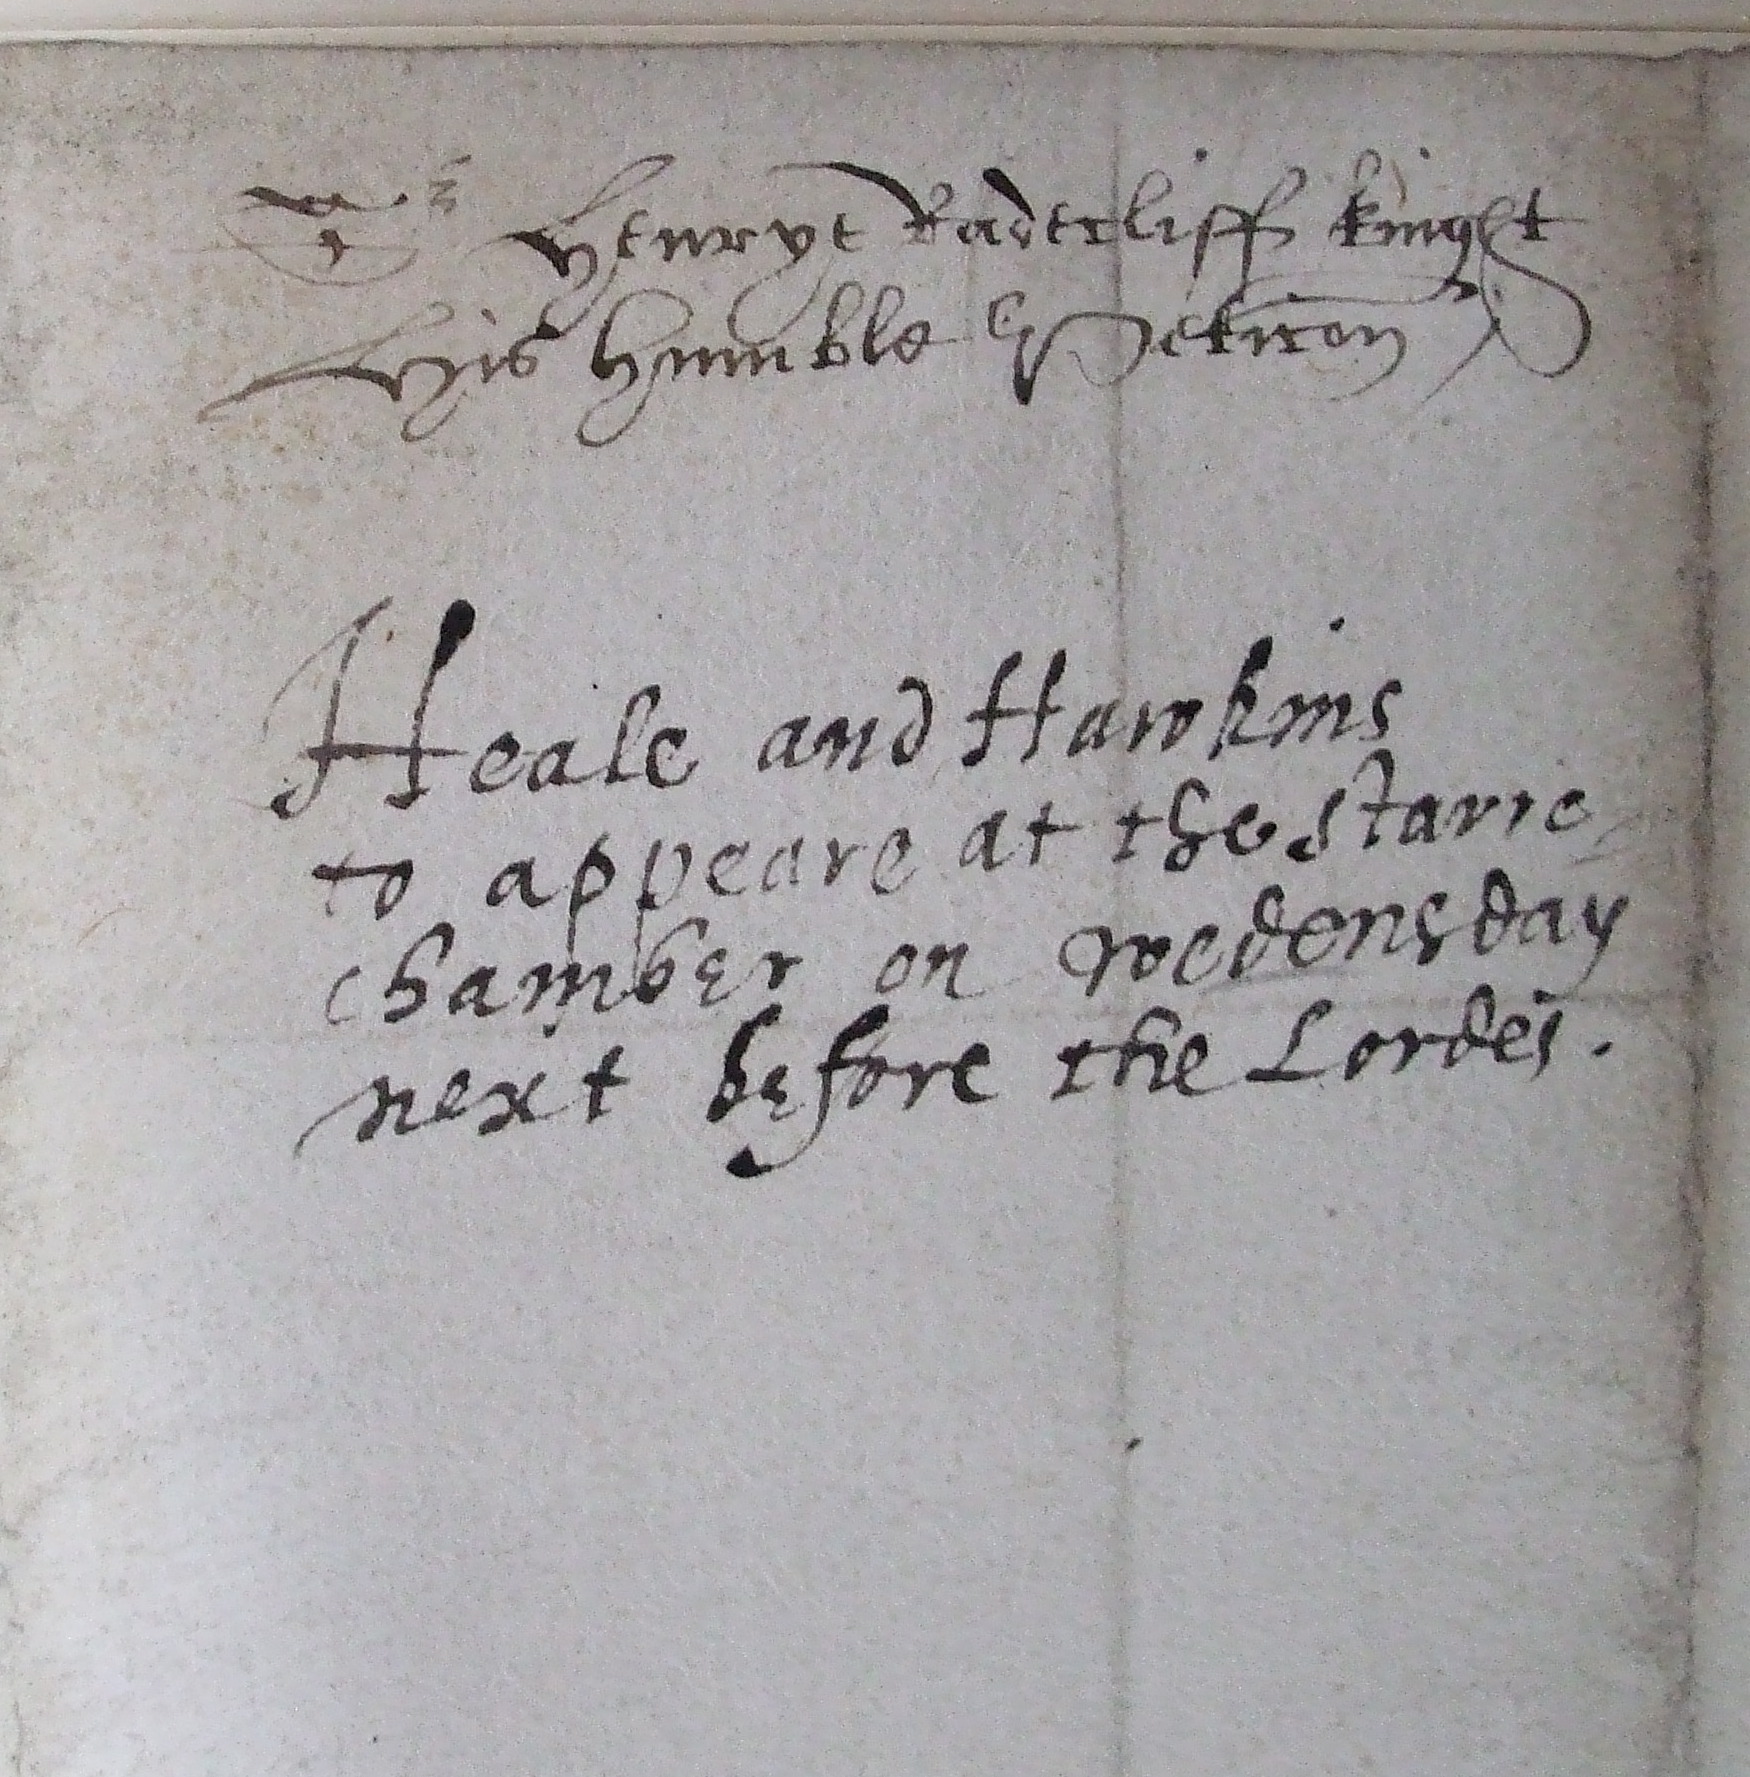 Sr Henrye Radecliff knight
his humble Peticon
Heale and Hawkins
to appeare at the starre
chamber on wedensday
next before the Lordes.